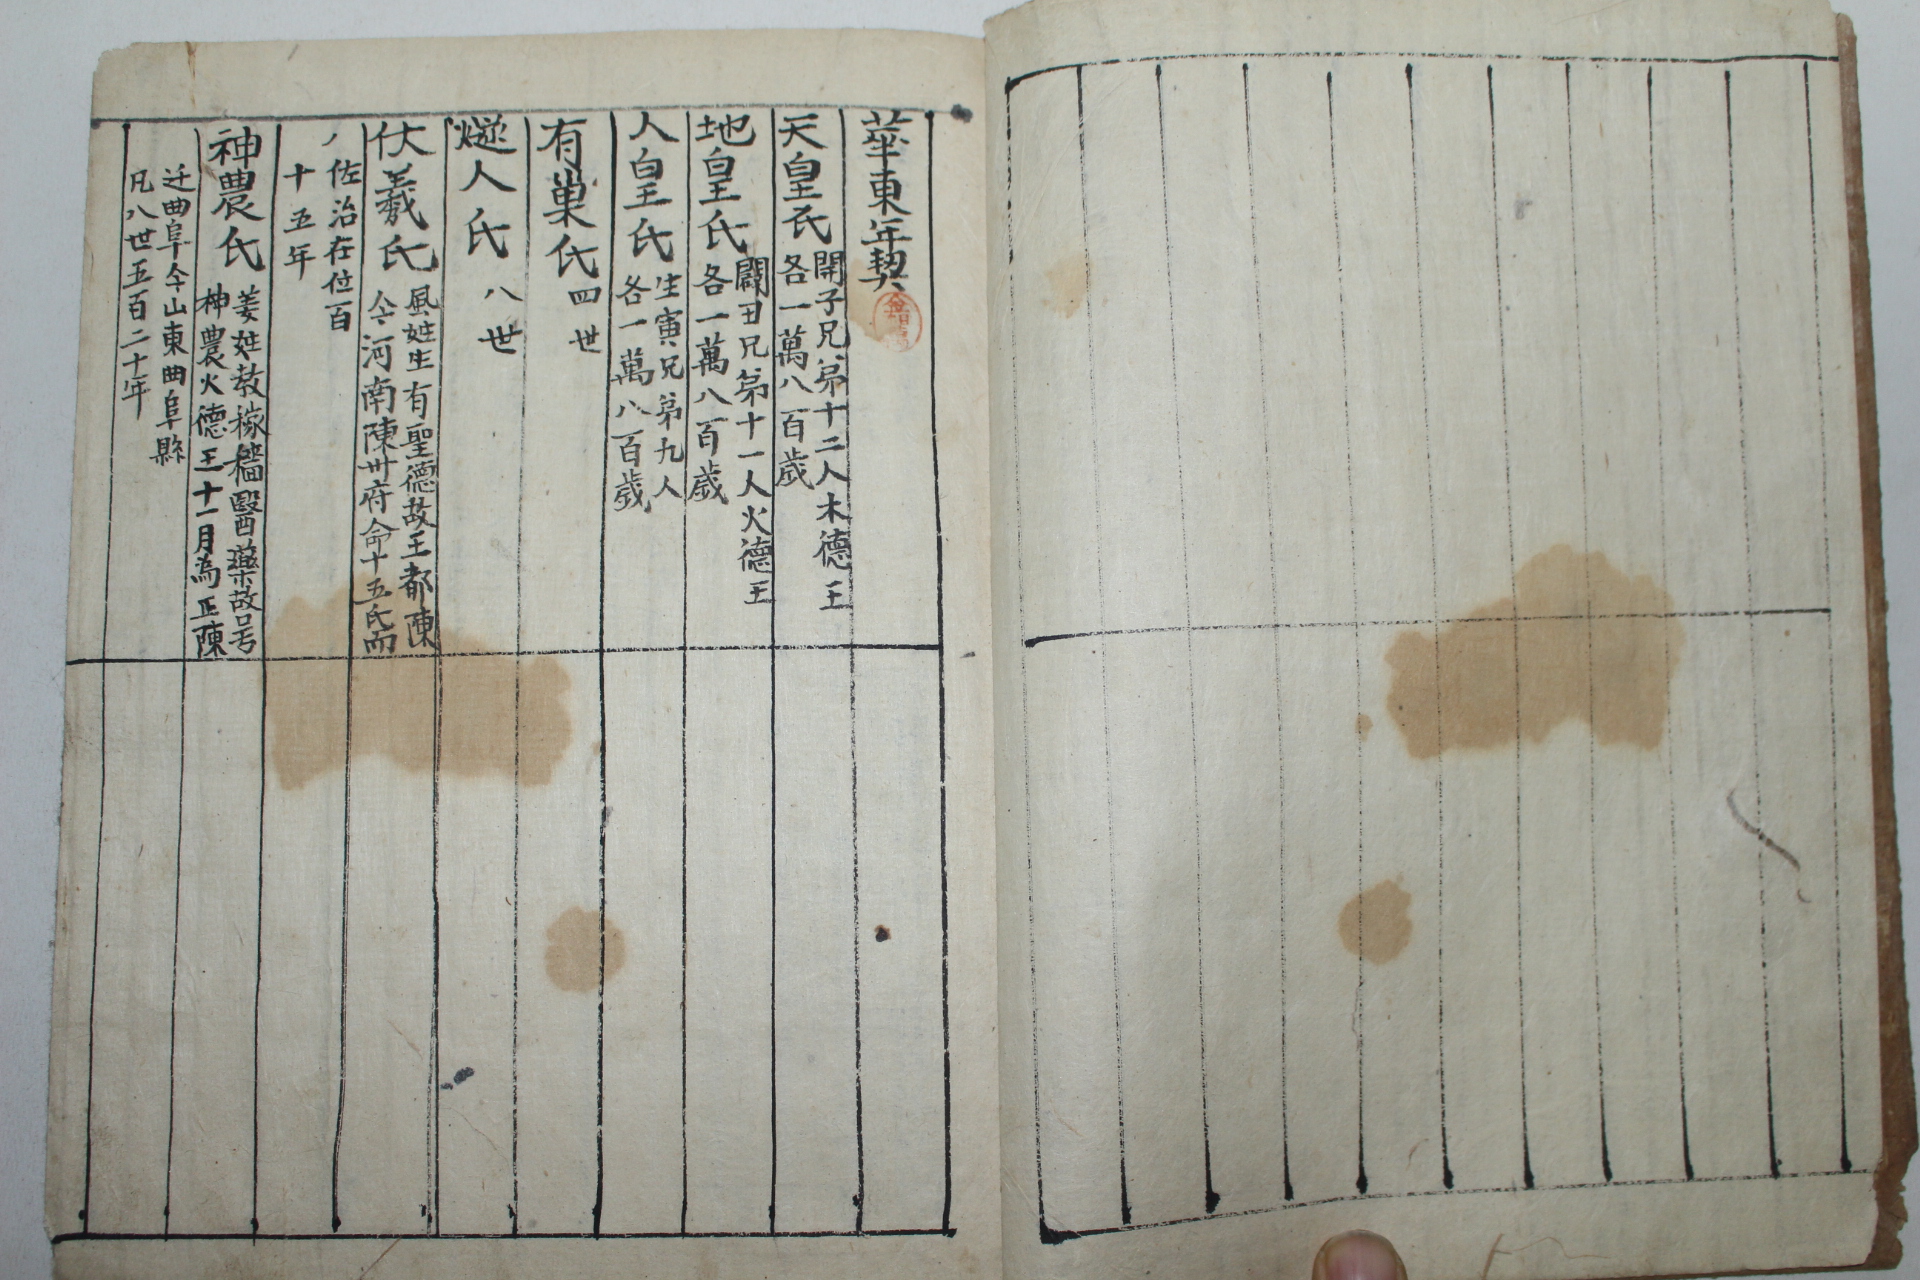 華東年契
天皇氏 開子兄弟十二人木德王
各一萬八百歲
地皇氏 闢丑兄弟十一人火德王
各一萬八百歲
人皇氏 生寅兄弟九人
各一萬八百歲
有巢氏 四世
燧人氏 八世
伏羲氏 風姓生有聖德故王都陳
今河南陳州府命十五氏而
佐治在位百
十五年
神農氏 姜姓敎稼穡醫藥故号
神農火德王十一月為正陳
迁曲阜今山東曲阜縣
凡八世五百二十年